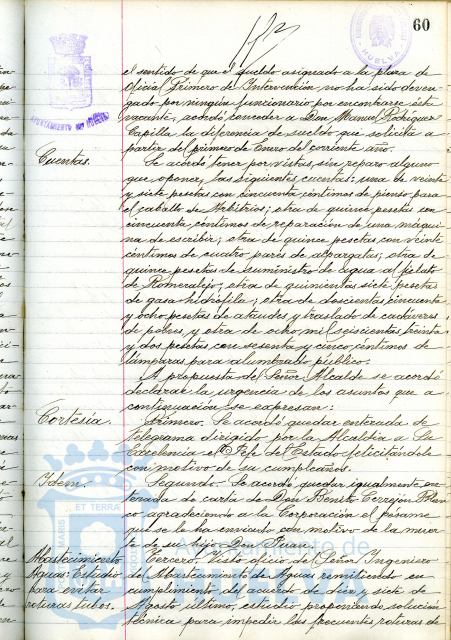 60
AYUNTAMIENTO DE HUELVA
HUELVA
el sentido de que el sueldo asignado a la plaza de
Oficial Primero de Intervención, no ha sido deven-
gado por ningún funcionario por encontrarse ésta
vacante, acordó conceder a Don Manuel Rodríguez
Capilla la diferencia de sueldo que solicita a
partir del primero de Enero del corriente año.
Cuentas.
Se acordó tener por vistas, sin reparo alguno
que oponer, las siguientes cuentas: una de veinte
y siete pesetas con cincuenta céntimos de pienso para
el caballo de Arbitrios; otra de quince pesetas con
cincuenta céntimos de reparación de una máqui-
na de escribir; otra de quince pesetas con veinte
céntimos de cuatro pares de alpargatas; otra de
quince pesetas de suministro de agua al fielato
de Romeralejo; otra de quinientas siete pesetas
de gasa hidrófila; otra de doscientas cincuenta
y ocho pesetas de ataudes y traslado de cadáveres
de pobres, y otra de ocho mil seiscientas treinta
y dos pesetas con sesenta y cinco céntimos de
lámparas para alumbrado público.
A propuesta del Señor Alcalde se acordó
declarar la urgencia de los asuntos que a
continuación se expresan:
Cortesía.
Primero. Se acordó quedar enterada de
telegrama dirigido por la Alcaldía a Su
Excelencia el Jefe de Estado felicitándole
con motivo de su cumpleaños.
Idem.
Segundo. Se acordó quedar igualmente en-
terada de carta de Don Benito Cerrejón Blan-
co agradeciendo a la Corporación el pésame
que se le ha enviado con motivo de la muer-
te de su hijo Don Juan.
Abastecimiento
Aguas: Estudio
para evitar
roturas tubos.
Tercero. Visto oficio del Señor Ingeniero
del Abastecimiento de Aguas remitiendo en
cumplimiento del acuerdo de diez y siete de
Agosto último, estudio proponiendo solución
técnica para impedir las frecuentes roturas de
ET TERRA
MARIS
Ayuntamiento de